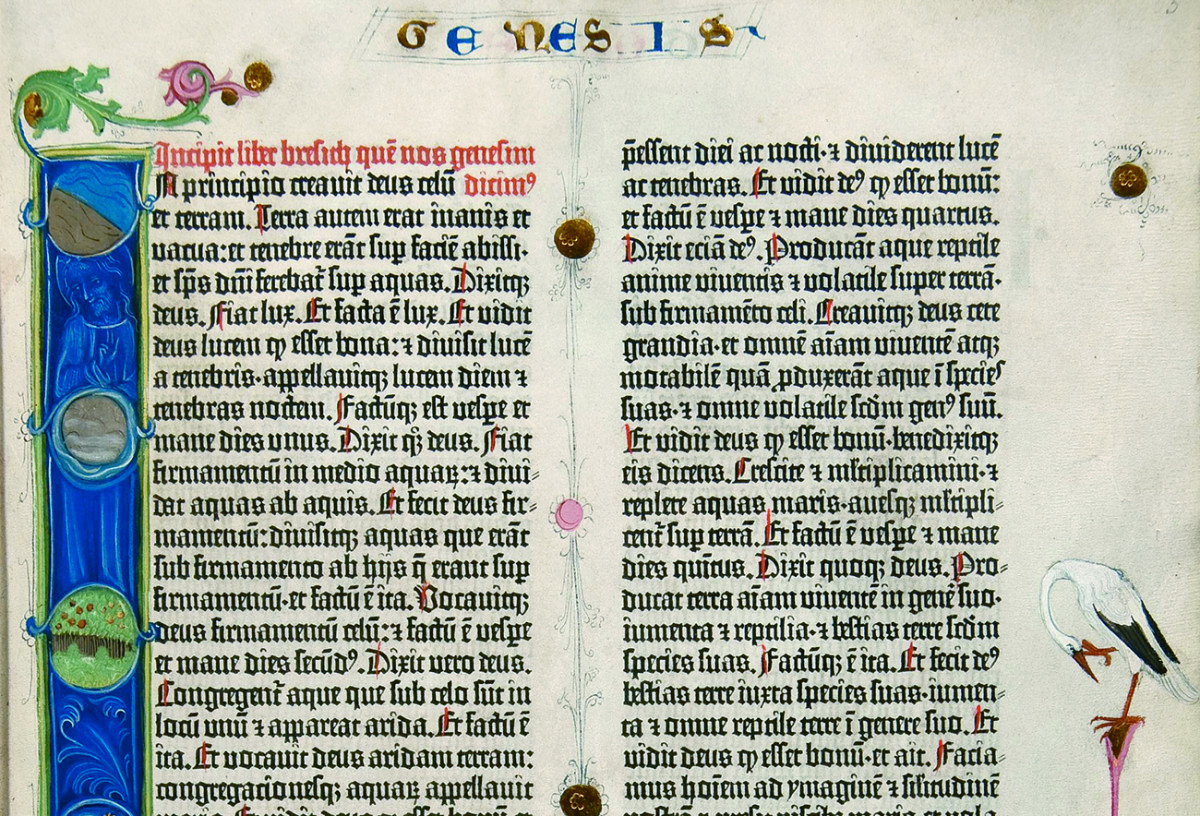 GENESIS
Incipit liber bresich quē nos genesim
In principio creavit deus celū dicim⁹
et terram. Terra autem erat inanis et
vacua: et tenebre erāt sup faciē abissi·
et sp̄s dn̄i ferebat᷑ sup aquas. Dixitqꝫ
deus. Fiat lux. Et facta ē lux. Et vidit
deus lucem ꝙ esset bona: ⁊ divisit lucē
a tenebris· appellavitqꝫ lucem diem ⁊
tenebras noctem. Factūqꝫ est vespe et
mane dies unus. Dixit qꝫ deus. Fiat
firmamentū in medio aquaꝝ: ⁊ divi-
dat aquas ab aquis. Et fecit deus fir-
mamentū: divisitqꝫ aquas que erāt
sub firmamento ab hijs q̄ erant sup
firmamentū· et factū ē ita. Vocavitqꝫ
deus firmamentū celū: ⁊ factū ē vespe
et mane dies secūd⁹. Dixit vero deus.
Congregent᷑ aque que sub celo sūt in
locū unū ⁊ appareat arida. Et factū ē
ita. Et vocavit deus aridam terram:
congregacionesqꝫ aquaꝝ appellavit
p̄essent diei ac nocti· ⁊ dividerent lucē
ac tenebras. Et vidit de⁹ ꝙ esset bonū:
et factū ē vespe ⁊ mane dies quartus.
Dixit eciā de⁹. Producāt aque reptile
anime viventis ⁊ volatile super terrā·
sub firmamēto celi. Creavitqꝫ deus cete
grandia· et omnē aīam viventē atqꝫ
motabilē quā ꝓduxerāt aque ī species
suas· ⁊ omne volatile scd̄m gen⁹ suū.
Et vidit deus ꝙ esset bonū· benedixitqꝫ
eis dicens. Crescite ⁊ mltiplicamini· ⁊
replete aquas maris· avesqꝫ mltipli-
cent᷑ sup terrā. Et factū ē vespe ⁊ mane
dies quītus. Dixit quoqꝫ deus. Pro-
ducat terra aīam viventē in genē suo·
iumenta ⁊ reptilia· ⁊ bestias terre scd̄m
species suas. Factūqꝫ ē ita. Et fecit de⁹
bestias terre iuxta species suas· iumen-
ta ⁊ omne reptile terre ī genere suo. Et
vidit deus ꝙ esset bonū· et ait. Facia-
mus hoīem ad ymaginē ⁊ silitudinē